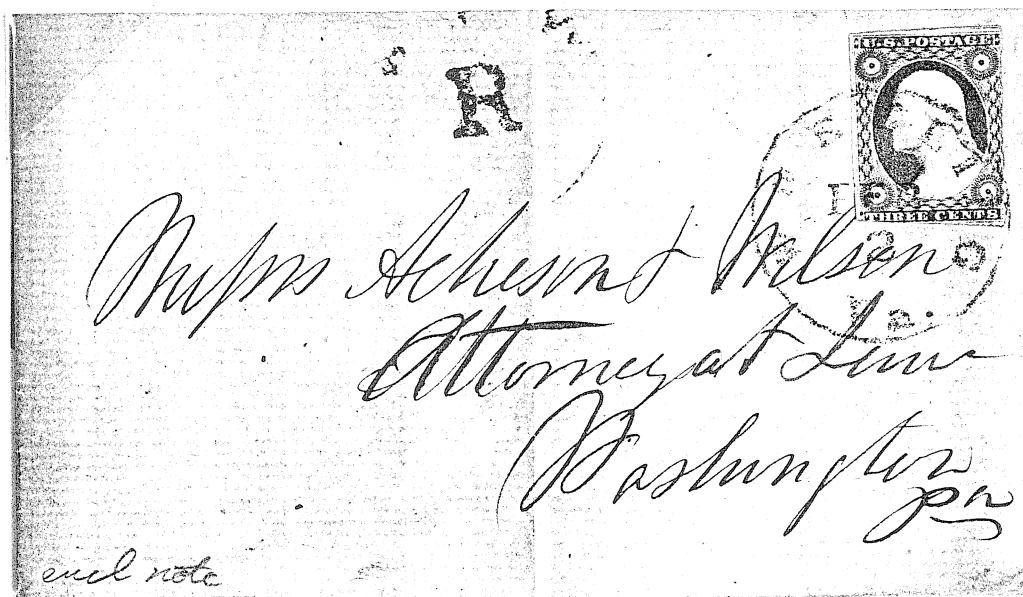 R
U.S. POSTAGE
THREE CENTS
Pa.
Messrs Acheson & Wilson
Attorney at Law
Washington
Pa
encl note